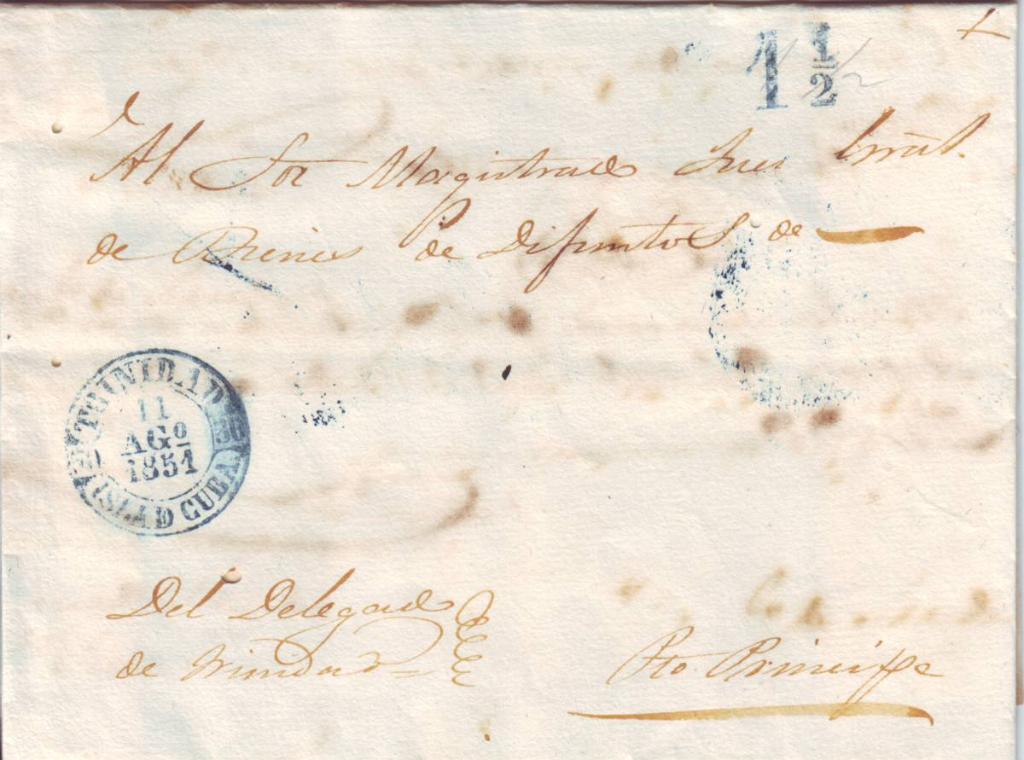 1 1/2
Al Sor Magistrado Juez Gral.
de Bienes de Difuntos de
TRINIDAD
11
AGº
1851
ISLA D CUBA
Del Delegado
de Trinidad
Pto. Principe